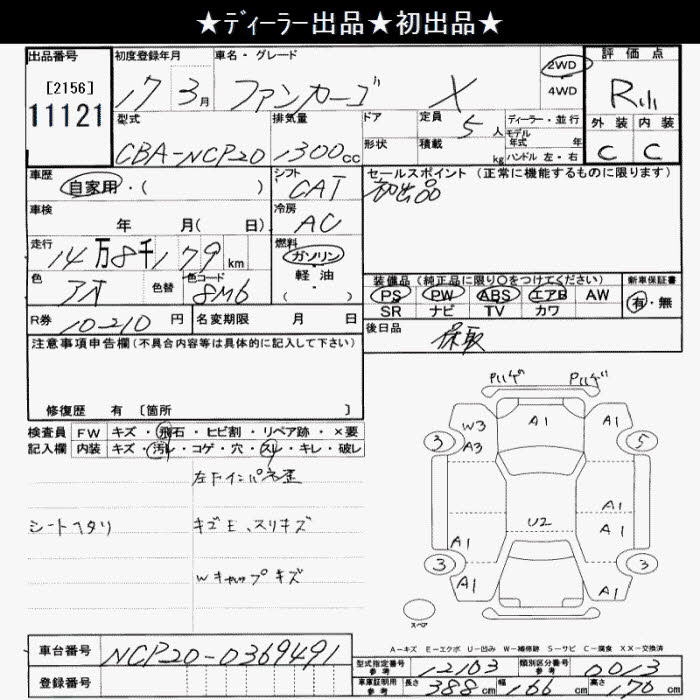 ★ディーラー出品★初出品★
出品番号 初度登録年月 車名・グレード 評価点
[2156] 17 3月 ファンカーゴ X 2WD R小
11121 4WD
型式 排気量 ドア 定員 5人 ディーラー・並行 外装 内装
CBA-NCP20 1300cc 形状 積載 kg モデル年式 年 C C
ハンドル 左・右
車歴 シフト セールスポイント (正常に機能するものに限ります)
自家用・( ) CAT 初出品
車検 年 月( 日) 冷房 AC
走行 14万8千179km 燃料 ガソリン
軽油
( ・ )
色 アオ 色替 色コード 8M6
装備品 (純正品に限り○をつけてください) 新車保証書
PS PW ABS エアB AW 有・無
SR ナビ TV カワ
R券 10210円 名変期限 月 日 後日品 保取
注意事項申告欄(不具合内容等は具体的に記入して下さい)
修復歴 有 [箇所 ]
検査員 FW キズ・飛石・ヒビ割・リペア跡・×要
記入欄 内装 キズ・汚レ・コゲ・穴・スレ・キレ・破レ
シートヘタリ
キズE、スリキズ
Wキャップキズ
Pハゲ Pハゲ
W3 A1 A1
A3
3 5
A1
U2
A1 A1
3 3
A1 A1
スペア
A-キズ E-エクボ U-凹み W-補修跡 S-サビ C-腐食 XX-交換済
車台番号 NCP20-0369491
登録番号
型式指定番号 参考 12103 類別区分番号 参考 0013
車庫証明用 参考 長さ 388cm 幅 166cm 高さ 170cm